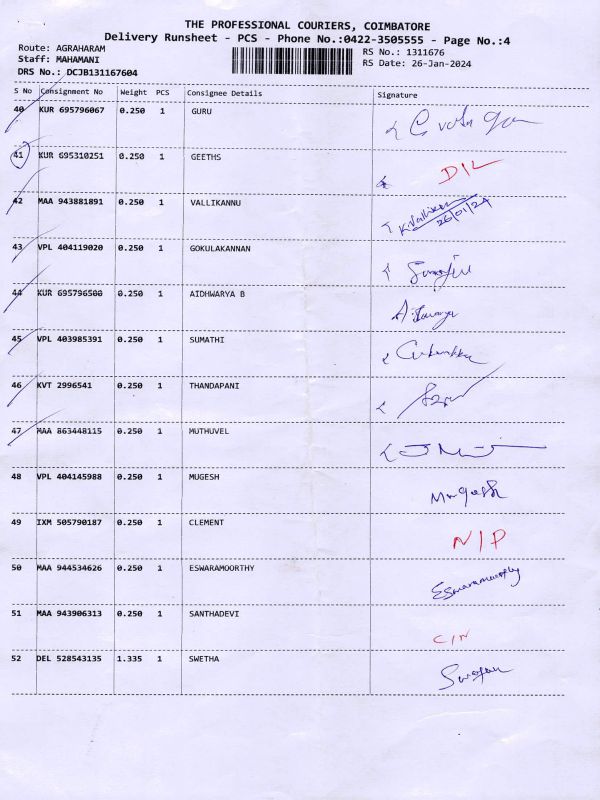 THE PROFESSIONAL COURIERS, COIMBATORE
Delivery Runsheet - PCS - Phone No.:0422-3505555 - Page No.:4
Route: AGRAHARAM RS No.: 1311676
Staff: MAHAMANI RS Date: 26-Jan-2024
DRS No.: DCJB131167604
S No Consignment No Weight PCS Consignee Details Signature
40 KUR 695796067 0.250 1 GURU
41 KUR 695310251 0.250 1 GEETHS D/L
42 MAA 943881891 0.250 1 VALLIKANNU K.Vallikannu
26/01/24
43 VPL 404119020 0.250 1 GOKULAKANNAN
44 KUR 695796500 0.250 1 AIDHWARYA B
45 VPL 403985391 0.250 1 SUMATHI
46 KVT 2996541 0.250 1 THANDAPANI
47 MAA 863448115 0.250 1 MUTHUVEL
48 VPL 404145988 0.250 1 MUGESH Mugesh
49 IXM 505790187 0.250 1 CLEMENT N/P
50 MAA 944534626 0.250 1 ESWARAMOORTHY Eswaramoorthy
51 MAA 943906313 0.250 1 SANTHADEVI C/N
52 DEL 528543135 1.335 1 SWETHA